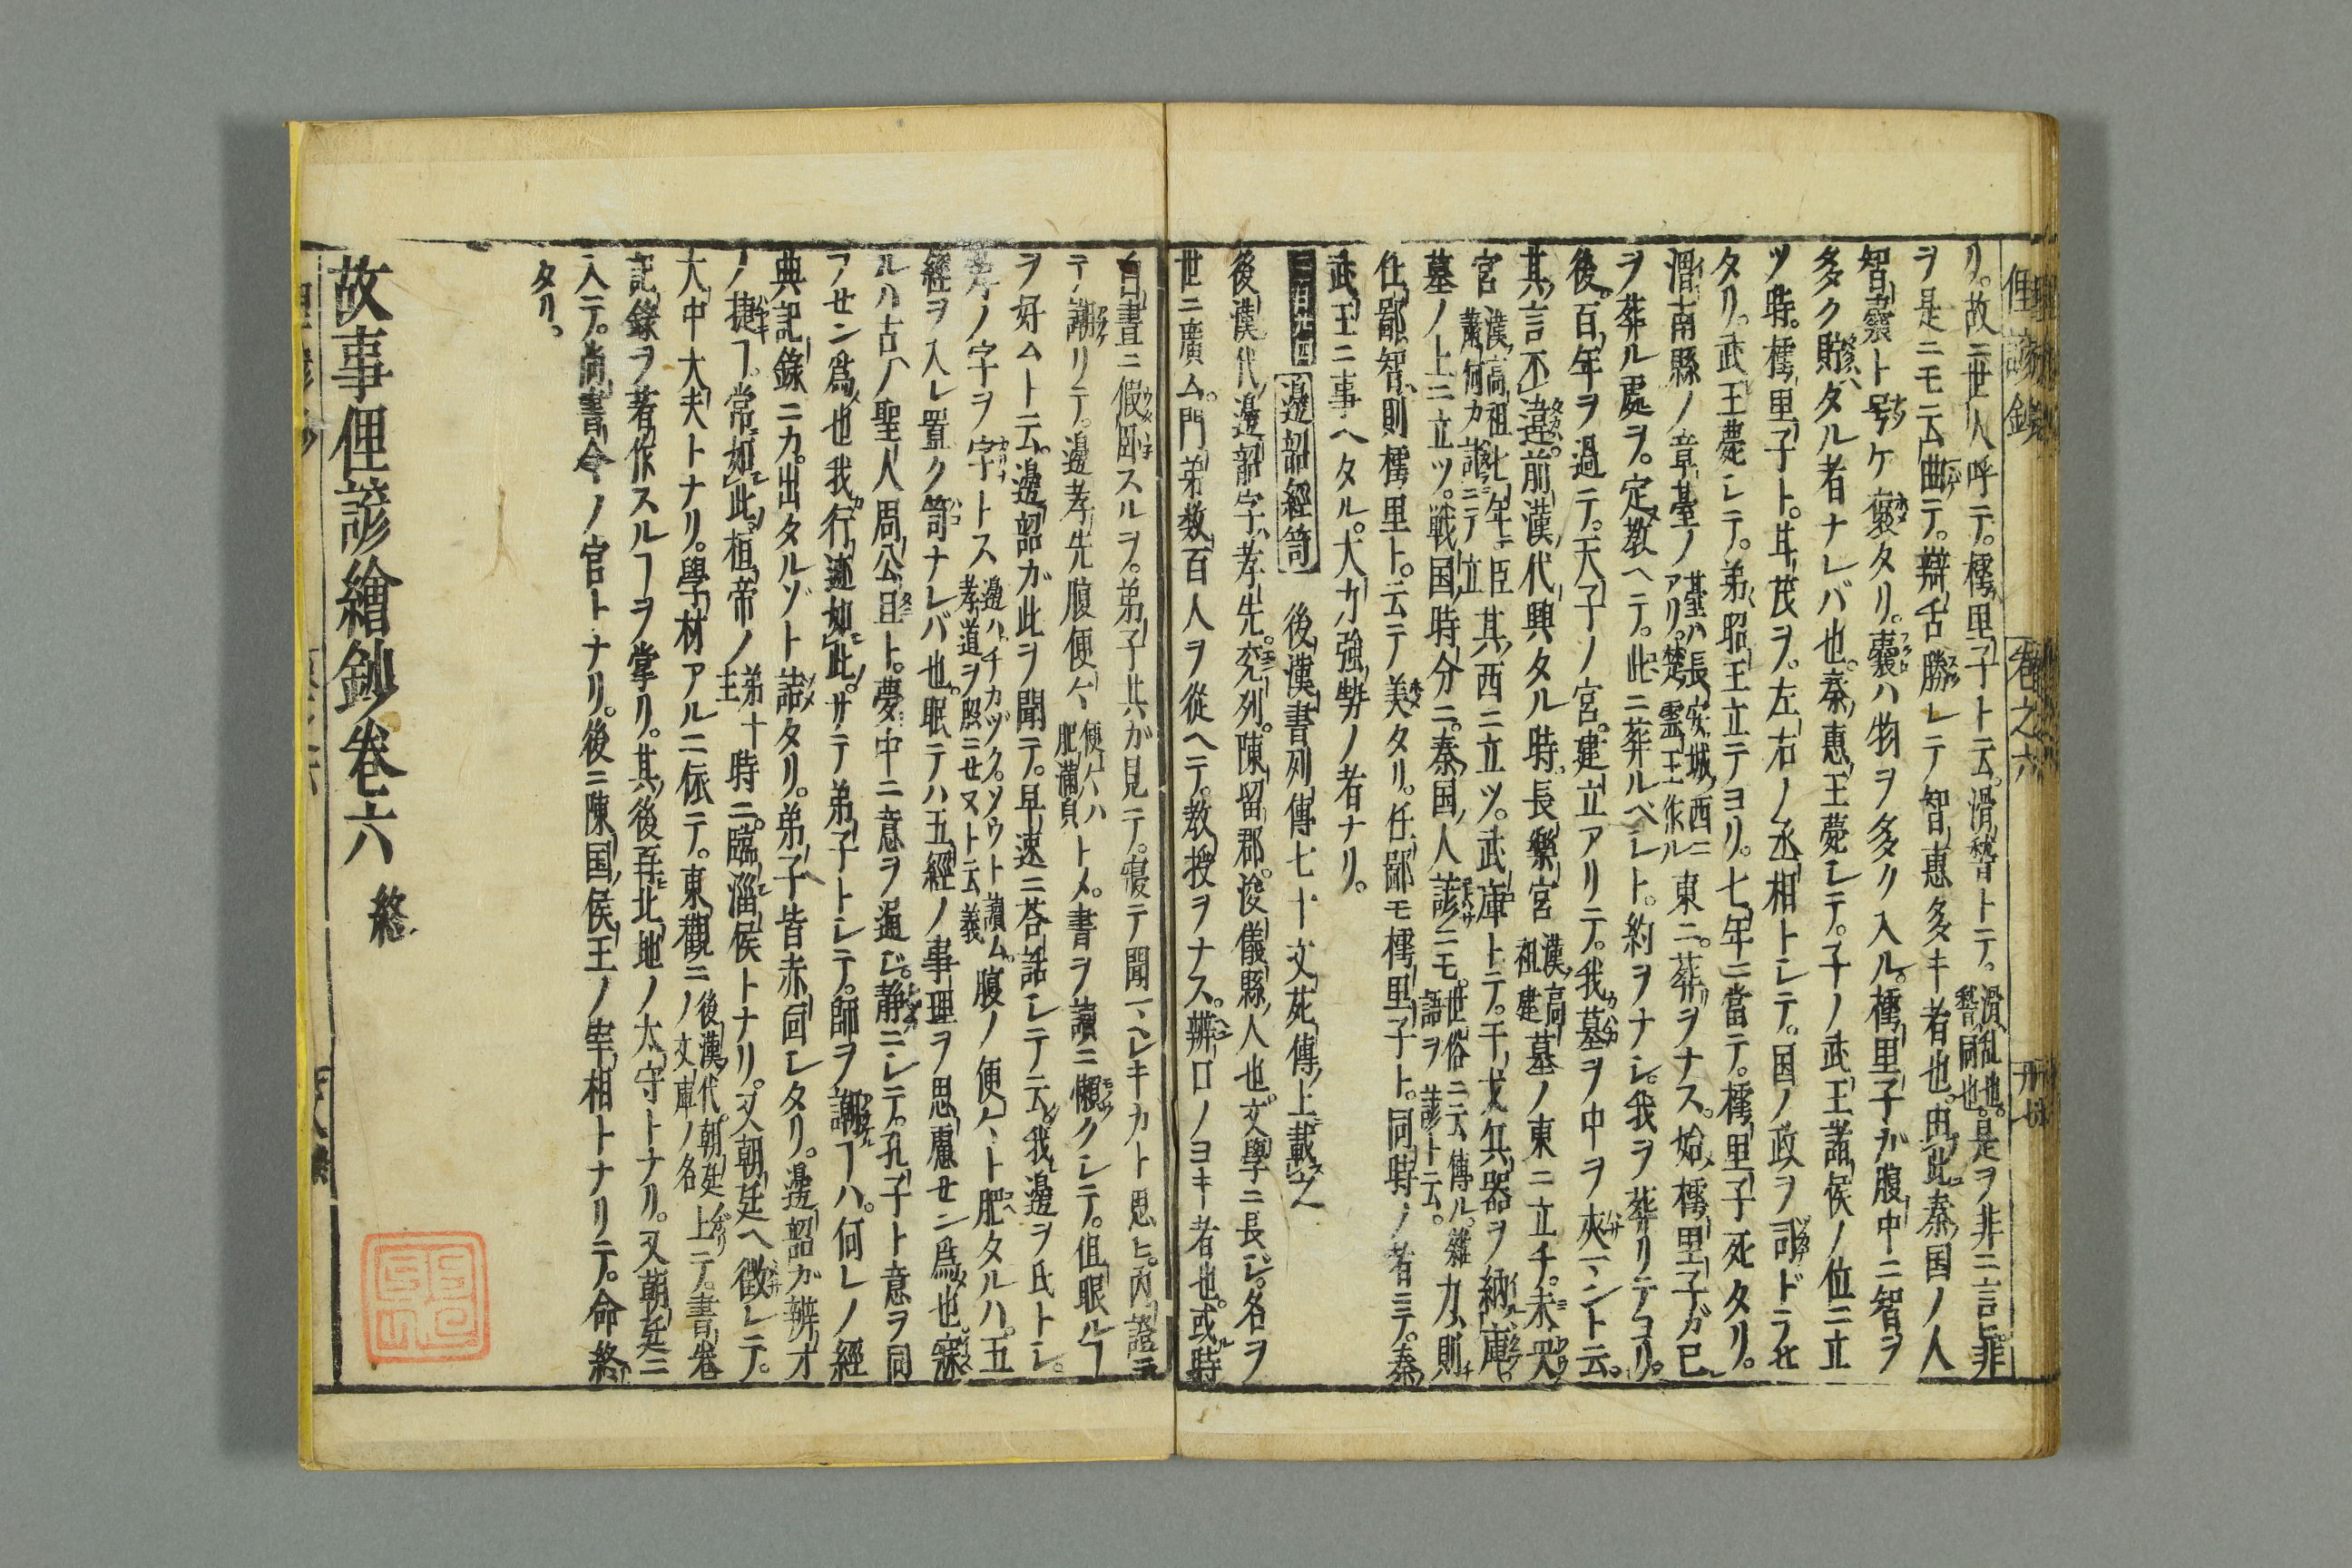 俚諺鈔
卷之六
リ。故ニ世人呼テ。樗里子ト云。滑稽トテ。滑ハ乱也。稽同也。是ヲ非ニ言ヒ罪
ヲ是ニモ云曲テ。辯舌勝レテ智惠多キ者也。由此秦国ノ人
智囊ト号ケ褒タリ。囊ハ物ヲ多ク入ル。樗里子ガ腹中ニ智ヲ
多ク貯タル者ナレバ也。秦惠王薨レテ。子ノ武王諸侯ノ位ニ立
ツ時。樗里子ト。甘茂ヲ。左右ノ丞相トレテ。国ノ政ヲ司ドラセ
タリ。武王薨レテ。弟昭王立テヨリ。七年ニ當テ。樗里子死タリ。
渭南縣ノ章臺ノ臺ハ長安城西ニアリ。楚靈王作ル東ニ。葬ヲナス。始樗里子ガ已
ヲ葬ル處ヲ。定教ヘテ。此ニ葬ルベレト。約ヲナシ。我ヲ葬リテヨリ。
後。百年ヲ過ニテ。天子ノ宮。建立アリテ。我墓ヲ中ヲ夾マント云。
其言不違。前漢代興タル時。長樂宮漢高祖建墓ノ東ニ立チ。未央
宮漢高祖七年ニ臣蕭何カ計ニテ立其西ニ立ツ。武庫トテ。干戈兵器ヲ納庫。
墓ノ上ニ立ツ。戦国時分ニ。秦国人諺ニモ。世俗ニ云傳ル。雜語ヲ諺ト云。力則
任鄙。智則樗里ト。云テ美タリ。任鄙モ樗里子ト。同時ノ者ニテ。秦
武王ニ事ヘタル。大力強勢ノ者ナリ。
邊韶經笥 後漢書列傳七十文苑傳上載之
後漢代。邊韶字孝先。兗列。陳留郡。浚儀縣人也。文學ニ長ジ。名ヲ
世ニ廣ム。門弟数百人ヲ從ヘテ。教授ヲナス。辨口ノヨキ者也。或時
白晝ニ假臥スルヲ。弟子共ガ見テ。寢テ聞マヘレキカト思ヒ。丙證ニ
テ謝リテ。邊孝先腹便々便々ハ肥滿皃トメ。書ヲ讀ニ懶クレテ。但眠ルヿ
ヲ好ムト云。邊韶ガ此ヲ聞テ。早速ニ荅話レテ云我邊ヲ氏トレ。
孝ノ字ヲ字トス邊ハチカヅク。ソウト讀ム。孝道ヲ照ニセヌト云義腹ノ便々ト肥タルハ。五
經ヲ入レ置ク笥ナレバ也。眠テハ五經ノ事理ヲ思慮セン爲也。寐
ルハ古ノ聖人周公旦ト。夢中ニ意ヲ通ジ。静ニレテ。孔子ト意ヲ同
フセン爲也我行迹如此。サテ弟子トレテ。師ヲ謝ヿハ。何レノ經
典記錄ニカ。出タルゾト詰タリ。弟子皆赤面レタリ。邊韶ガ辨才
ノ捷ヿ。常如此。桓帝ノ第十主時ニ。臨淄侯トナリ。又朝廷ヘ徵レテ。
大中大夫トナリ。學材アルニ依テ。東觀ニ後漢代。朝廷ノ文庫ノ名上テ。書巻
記錄ヲ著作スルヿヲ掌リ。其後再北地ノ太守トナリ。又朝廷ニ
入テ。尚書令ノ官トナリ。後ニ陳国侯王ノ宰相トナリテ。命終
タリ。
故事俚諺繪鈔卷六 終